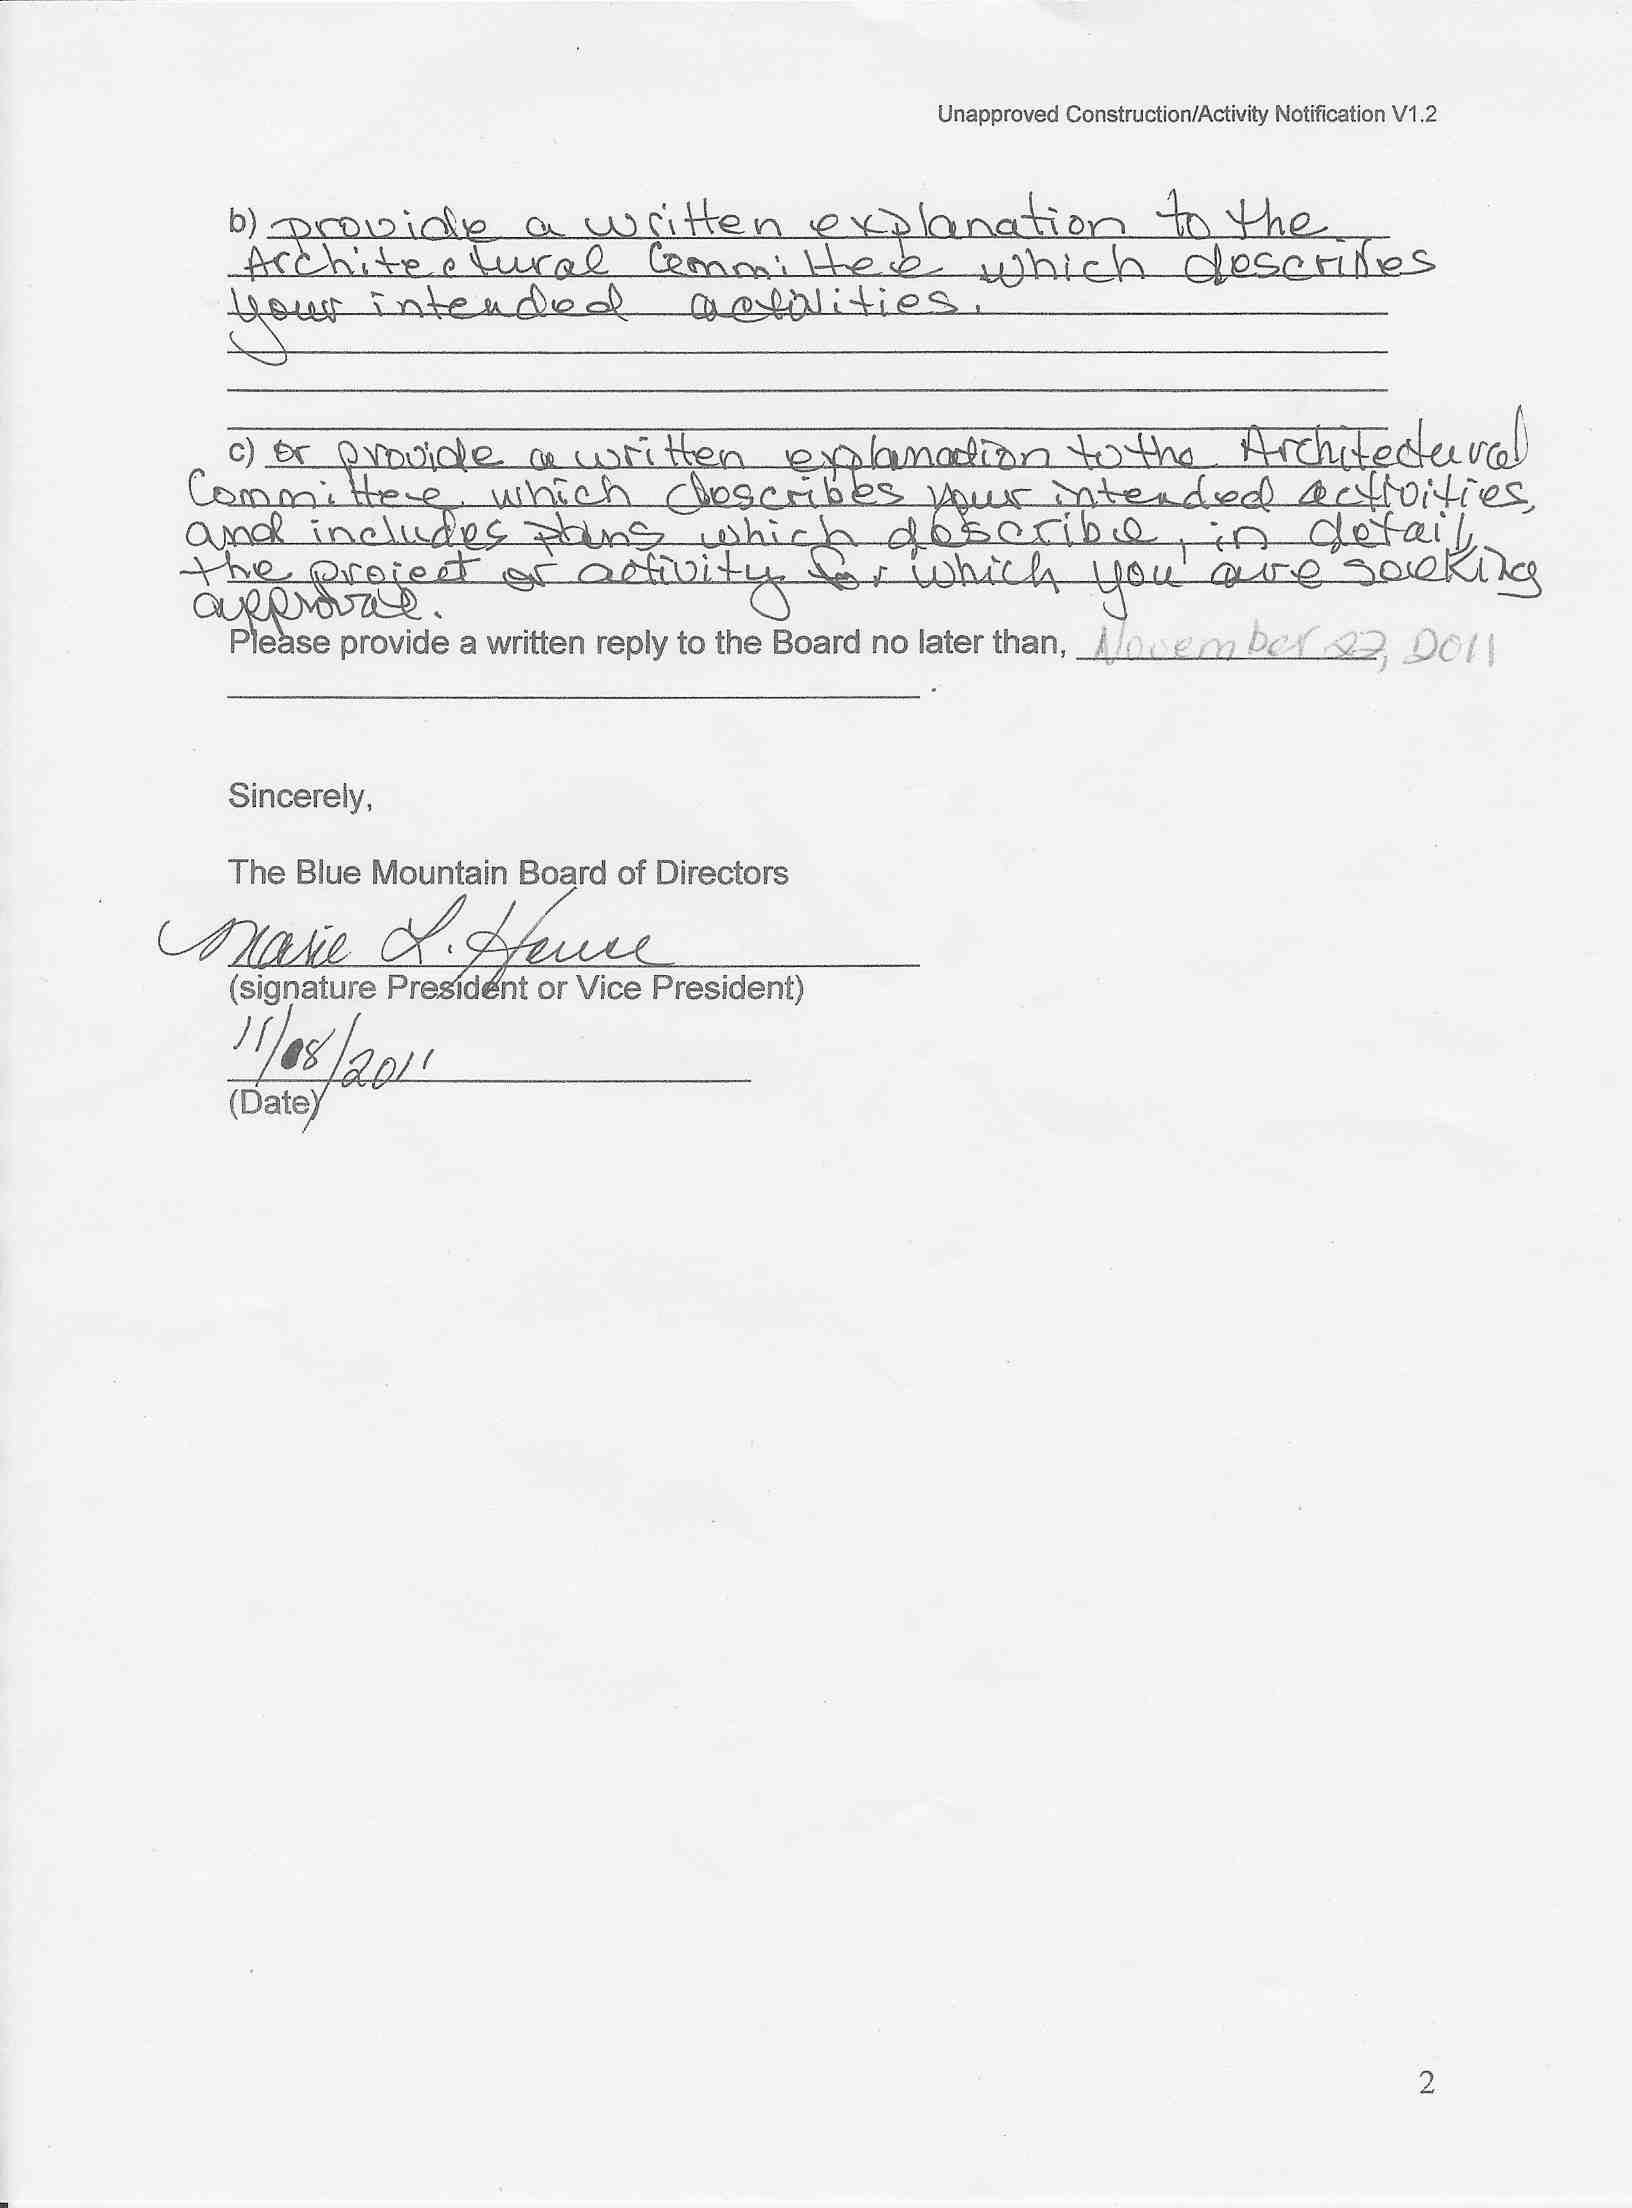 Unapproved Construction/Activity Notification V1.2
b) provide a written explanation to the
Architectural Committee which describes
your intended activities.
c) or provide a written explanation to the Architectural
Committee which describes your intended activities,
and includes plans which describe, in detail,
the project or activity for which you are seeking
approval.
Please provide a written reply to the Board no later than, November 22, 2011
.
Sincerely,
The Blue Mountain Board of Directors
Marie L.
(signature President or Vice President)
11/08/2011
(Date)
2